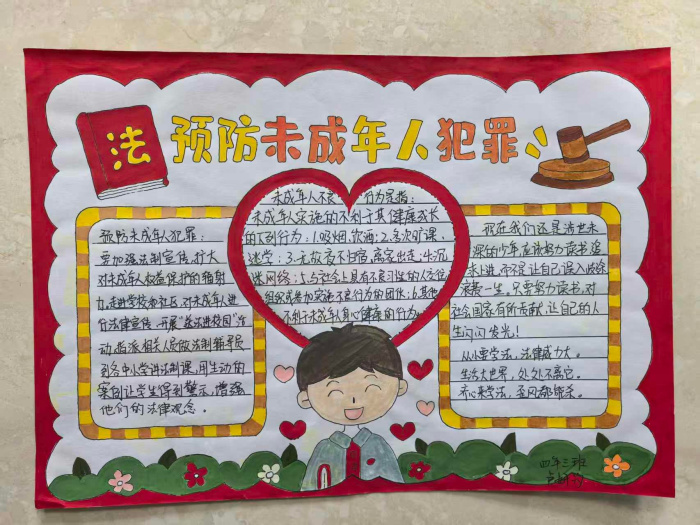 法
预防未成年人犯罪
预防未成年人犯罪：
要加强法制宣传，扩大
对未成年人权益保护的辐射
力，走进学校和社区，对未成年人进
行法律宣传，开展"送法进校园"活
动，指派相关人员做法制辅导员
到各中小学讲法制课，用生动的
案例让学生得到警示，增强
他们的法律观念。
未成年人不良行为是指：
未成年人实施的不利于其健康成长
的下列行为：1.吸烟、饮酒；2.多次旷课
逃学；3.无故夜不归宿，离家出走；4.沉
迷网络；5.与社会上具有不良习性的人交往
组织或参加实施不良行为的团伙；6.其他
不利于未成年人身心健康的行为。
现在我们还是涉世未
深的少年，应该努力读书，追
求上进，而不让自己误入歧途
一生。只要努力读书，对
社会国家有所贡献，让自己的人
生闪闪发光！
从小要学法，法律威力大。
生活大世界，处处不离它。
齐心来学法，歪风都能杀。
四年三班